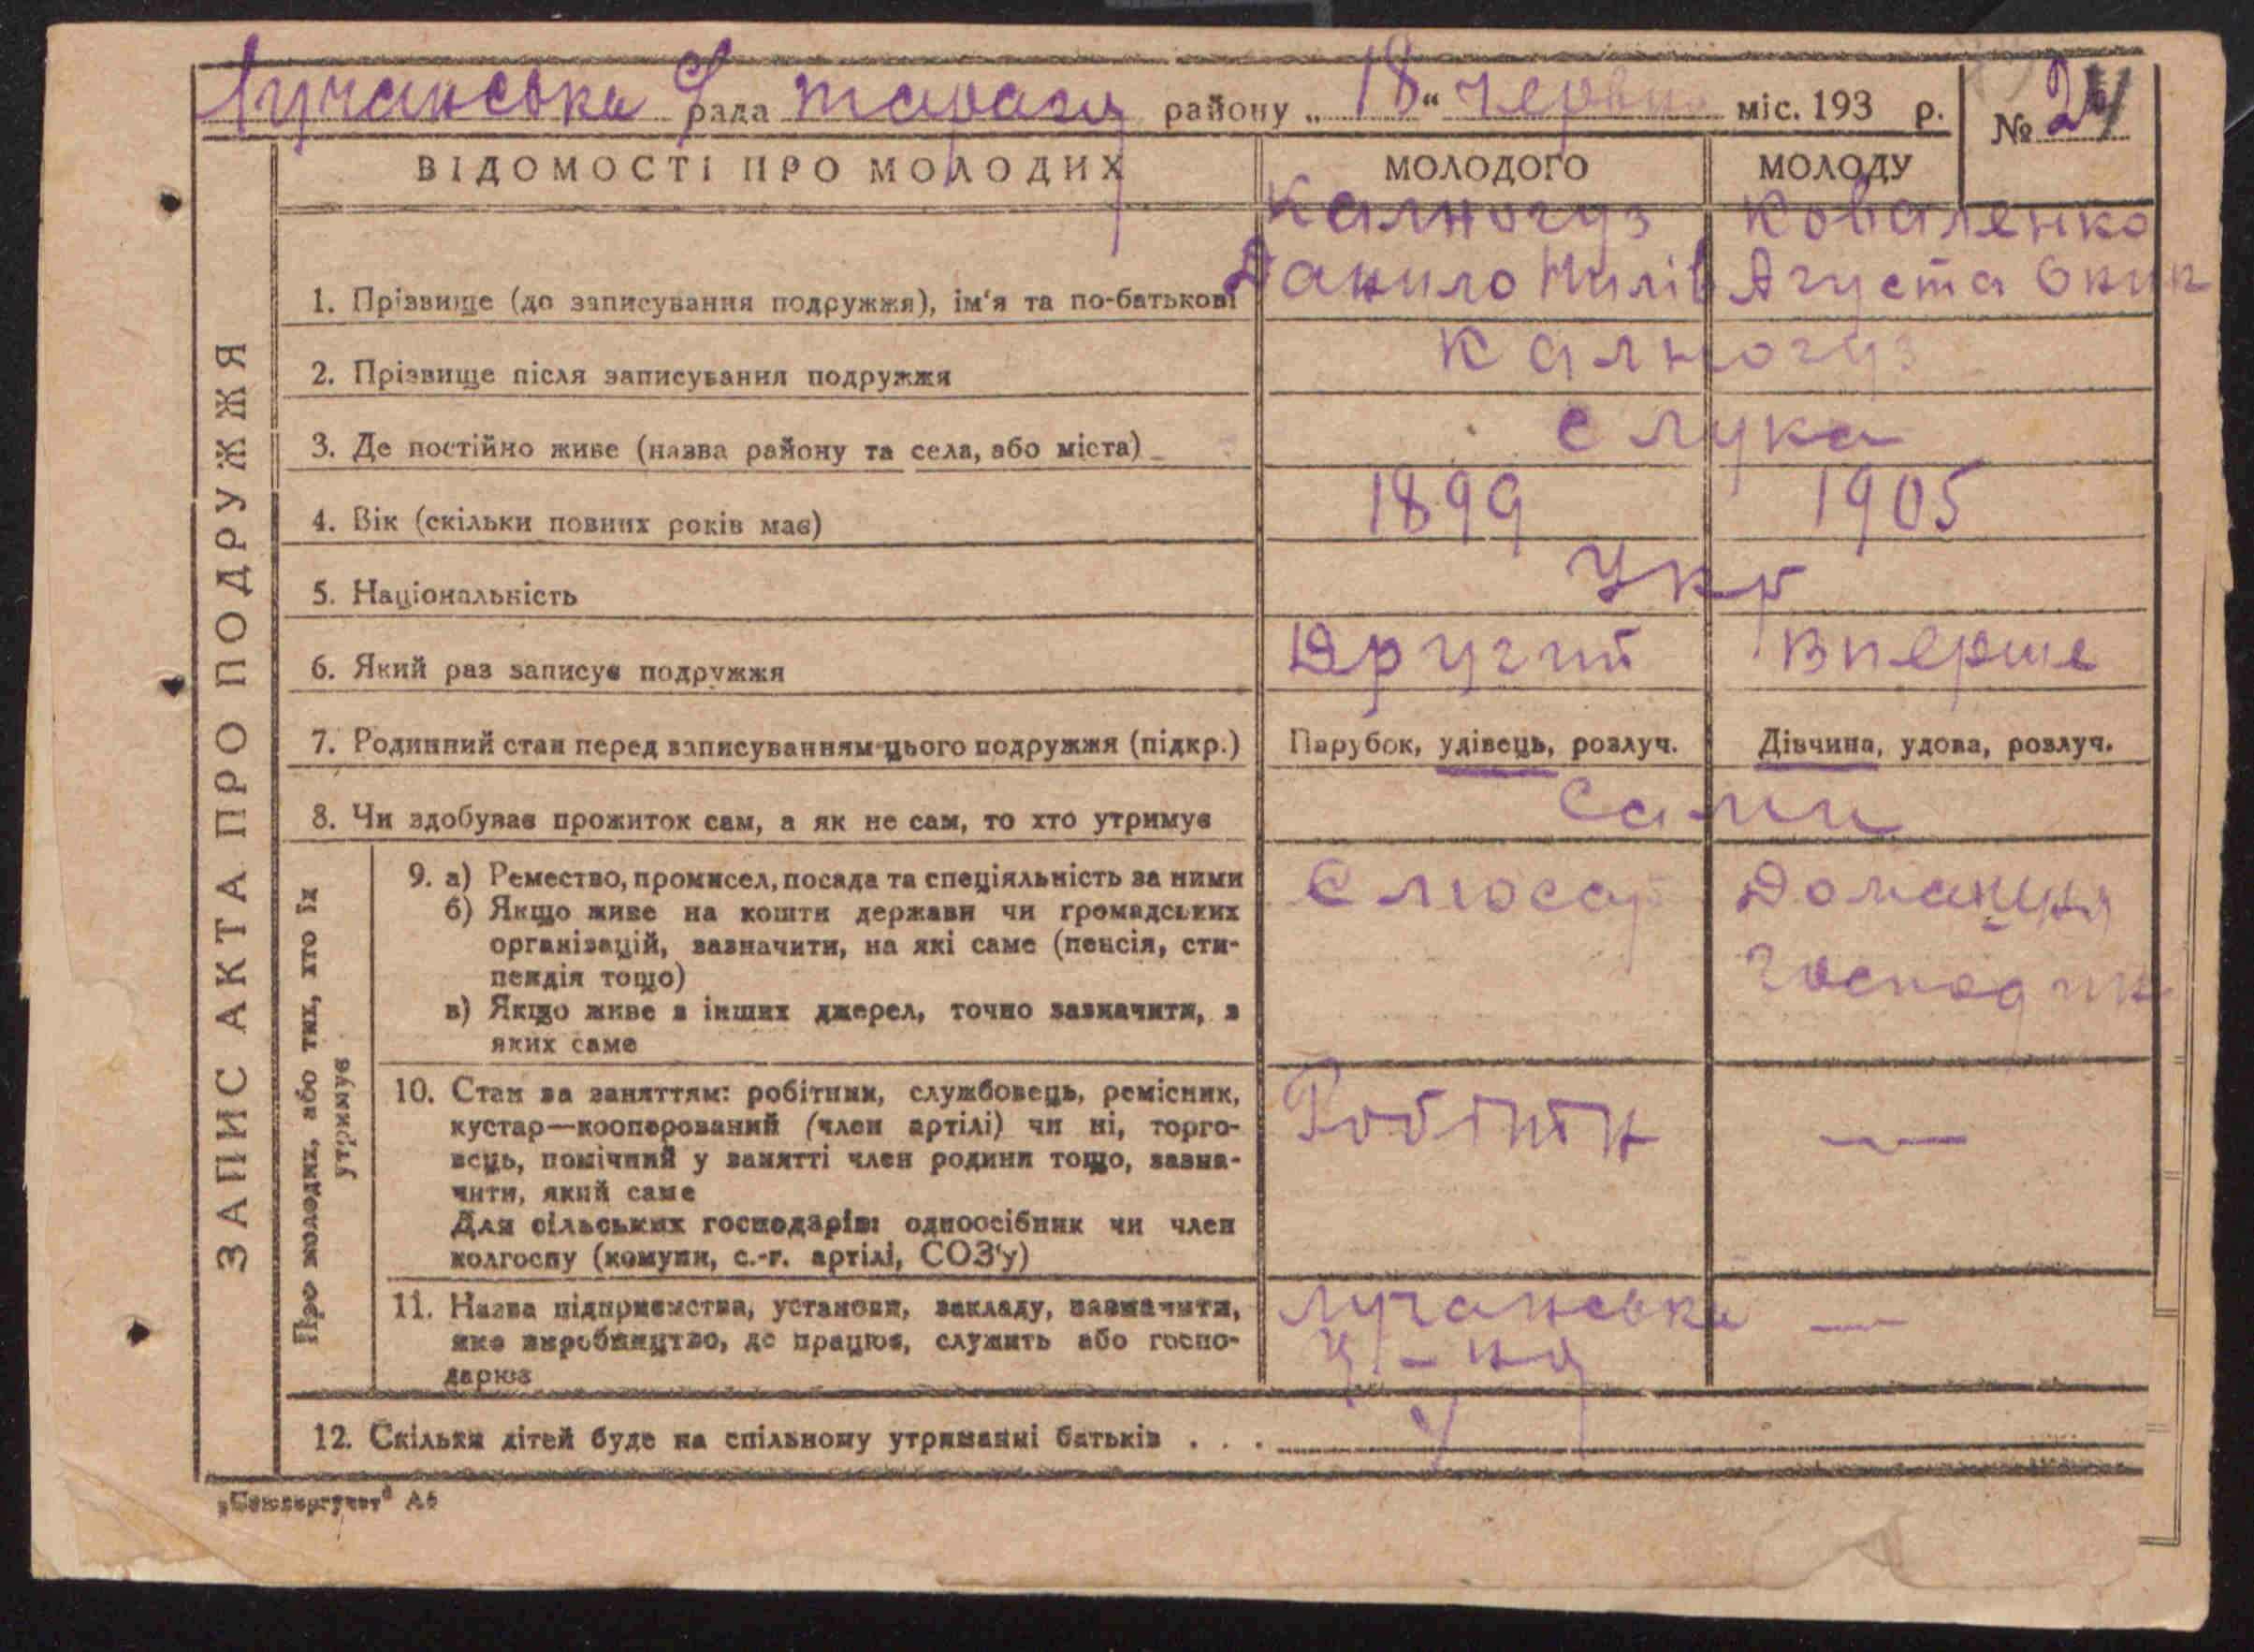 Лучанська С рада таращ району „ 18 “ червня міс. 193 р.
№ 24
ЗАПИС АКТА ПРО ПОДРУЖЖЯ
ВІДОМОСТІ ПРО МОЛОДИХ МОЛОДОГО МОЛОДУ
Калногуз Коваленко
1. Прізвище (до записування подружжя), ім'я та по-батькові Данило Августа
2. Прізвище після записування подружжя Калногуз
3. Де постійно живе (назва району та села, або міста) с лука
4. Вік (скільки повних років має) 1899 1905
5. Національність Укр
6. Який раз записує подружжя Другий Вперше
7. Родинний стан перед записуванням цього подружжя (підкр.) Парубок, удівець, розлуч. Дівчина, удова, розлуч.
8. Чи здобуває прожиток сам, а як не сам, то хто утримує Сами
Про молодих, або тих, хто їх
утримує
9. а) Ремество, промисел, посада та спеціяльність за ними Слюсар Домашня
б) Якщо живе на кошти держави чи громадських
організацій, зазначити, на які саме (пенсія, сти- господин
пендія тощо)
в) Якщо живе з інших джерел, точно зазначити, з
яких саме
10. Стан за заняттям: робітник, службовець, ремісник, Робітн —
кустар—кооперований (член артілі) чи ні, торго-
вець, помічний у занятті член родини тощо, зазна-
чити, який саме
Для сільських господарів: одноосібник чи член
колгоспу (комуни, с.-г. артілі, СОЗ'у)
11. Назва підприємства, установи, закладу, зазначити, Лучанська —
яке виробництво, де працює, служить або госпо-
дарює
12. Скільки дітей буде на спільному утриманні батьків . . .